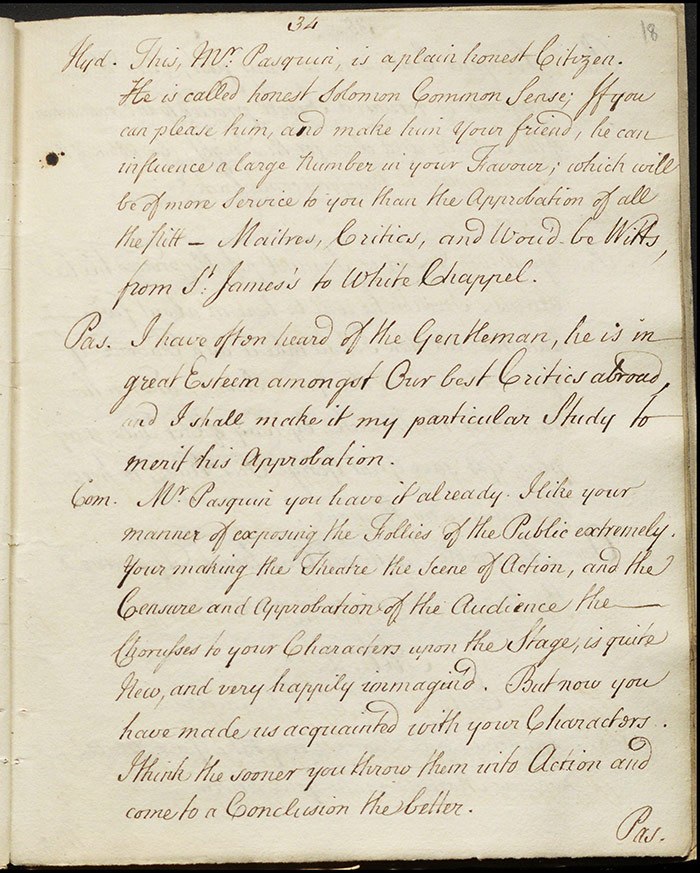 34
18
Hyd. This, Mr. Pasquin, is a plain honest Citizen.
He is called honest Solomon Common Sense; If you
can please him, and make him your friend, he can
influence a large Number in your Favour; which will
be of more Service to you than the Approbation of all
the petit - Maitres, Critics, and Wou'd be Witts,
from St. James's to White Chappel.
Pas. I have often heard of the Gentleman, he is in
great Esteem amongst Our best Critics abroad,
and I shall make it my particular Study to
merit his Approbation.
Com. Mr. Pasquin you have it already. I like your
manner of exposing the Follies of the Public extremely.
Your making the Theatre the Scene of Action, and the
Censure and Approbation of the Audience the
Chorusses to your Characters upon the Stage, is quite
New, and very happily immagin'd. But now you
have made us acquainted with your Characters.
I think the sooner you throw them into Action and
come to a Conclusion the better.
Pas.